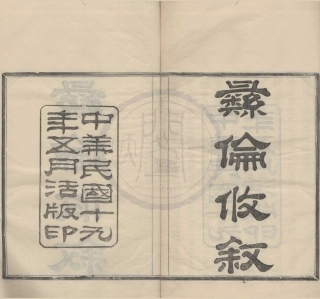 彝倫攸敘
中華民國十九
年五月活版印